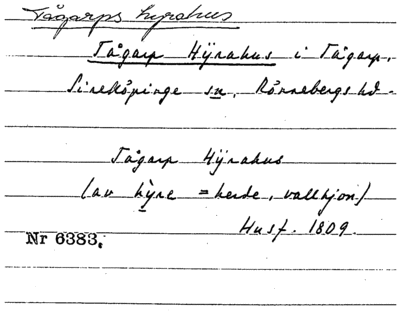 Tågarps hyrahus
Tågarp Hÿrahus i Tågarp.
Sireköpinge sn. Rönnebergs hd.
Tågarp Hÿrahus
(av hÿre = herde, vallhjon)
Husf. 1809.
Nr 6383.